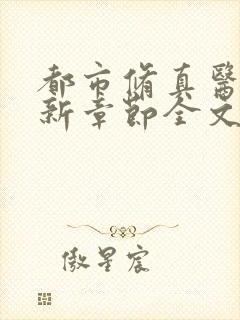 都市脩真醫
新章節全文
傲星宸